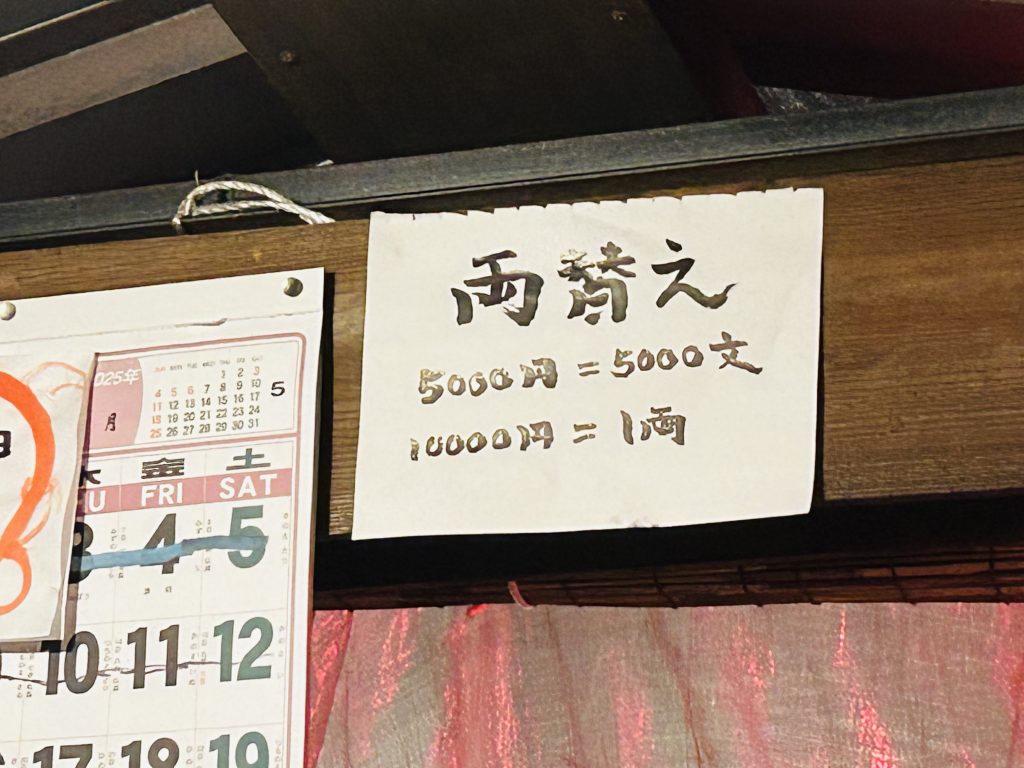 両替え
5000円=5000文
10000円=1両
2025年
5
月
SUN MON TUE WED THU FRI SAT
1 2 3
4 5 6 7 8 9 10
11 12 13 14 15 16 17
18 19 20 21 22 23 24
25 26 27 28 29 30 31
木 金 土
FRI SAT
3 4 5
10 11 12
17 18 19